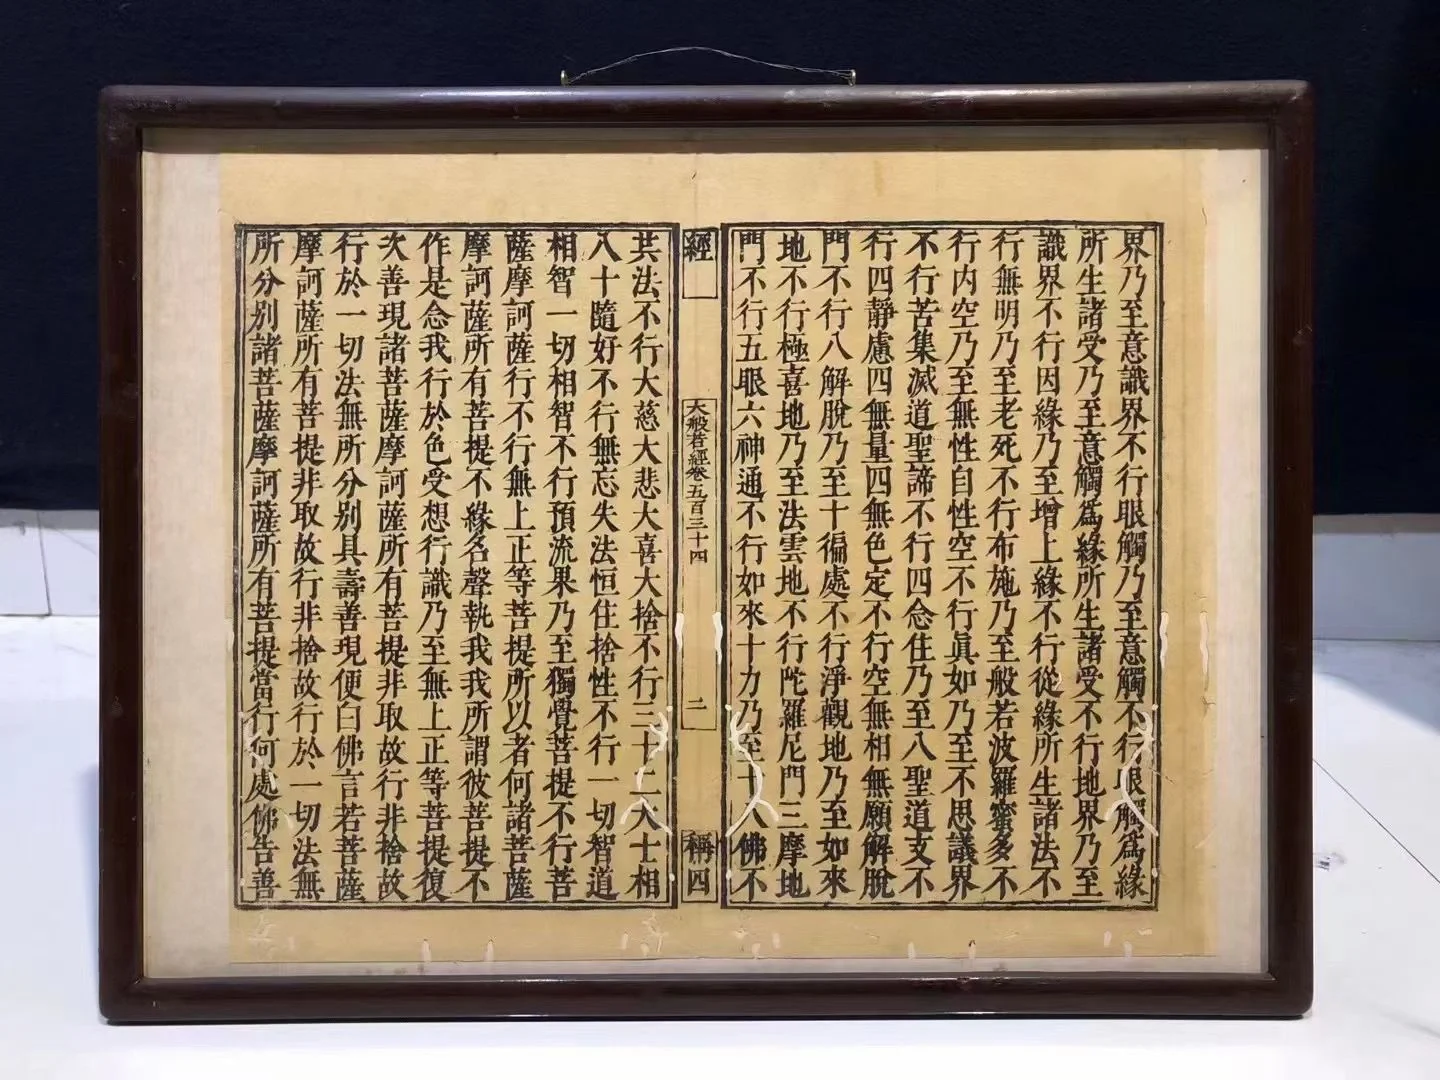 界乃至意識界不行眼觸乃至意觸不行眼觸爲緣
所生諸受乃至意觸爲緣所生諸受不行地界乃至
識界不行因緣乃至增上緣不行從緣所生諸法不
行無明乃至老死不行布施乃至般若波羅蜜多不
行内空乃至無性自性空不行眞如乃至不思議界
不行苦集滅道聖諦不行四念住乃至八聖道支不
行四靜慮四無量四無色定不行空無相無願解脫
門不行八解脫乃至十徧處不行淨觀地乃至如來
地不行極喜地乃至法雲地不行陀羅尼門三摩地
門不行五眼六神通不行如來十力乃至十八佛不
經
大般若經卷五百三十四
二
稱四
共法不行大慈大悲大喜大捨不行三十二大士相
八十隨好不行無忘失法恒住捨性不行一切智道
相智一切相智不行預流果乃至獨覺菩提不行菩
薩摩訶薩行不行無上正等菩提所以者何諸菩薩
摩訶薩所有菩提不緣名聲執我我所謂彼菩提不
作是念我行於色受想行識乃至無上正等菩提復
次善現諸菩薩摩訶薩所有菩提非取故行非捨故
行於一切法無所分别具壽善現便白佛言若菩薩
摩訶薩所有菩提非取故行非捨故行於一切法無
所分别諸菩薩摩訶薩所有菩提當行何處佛告善